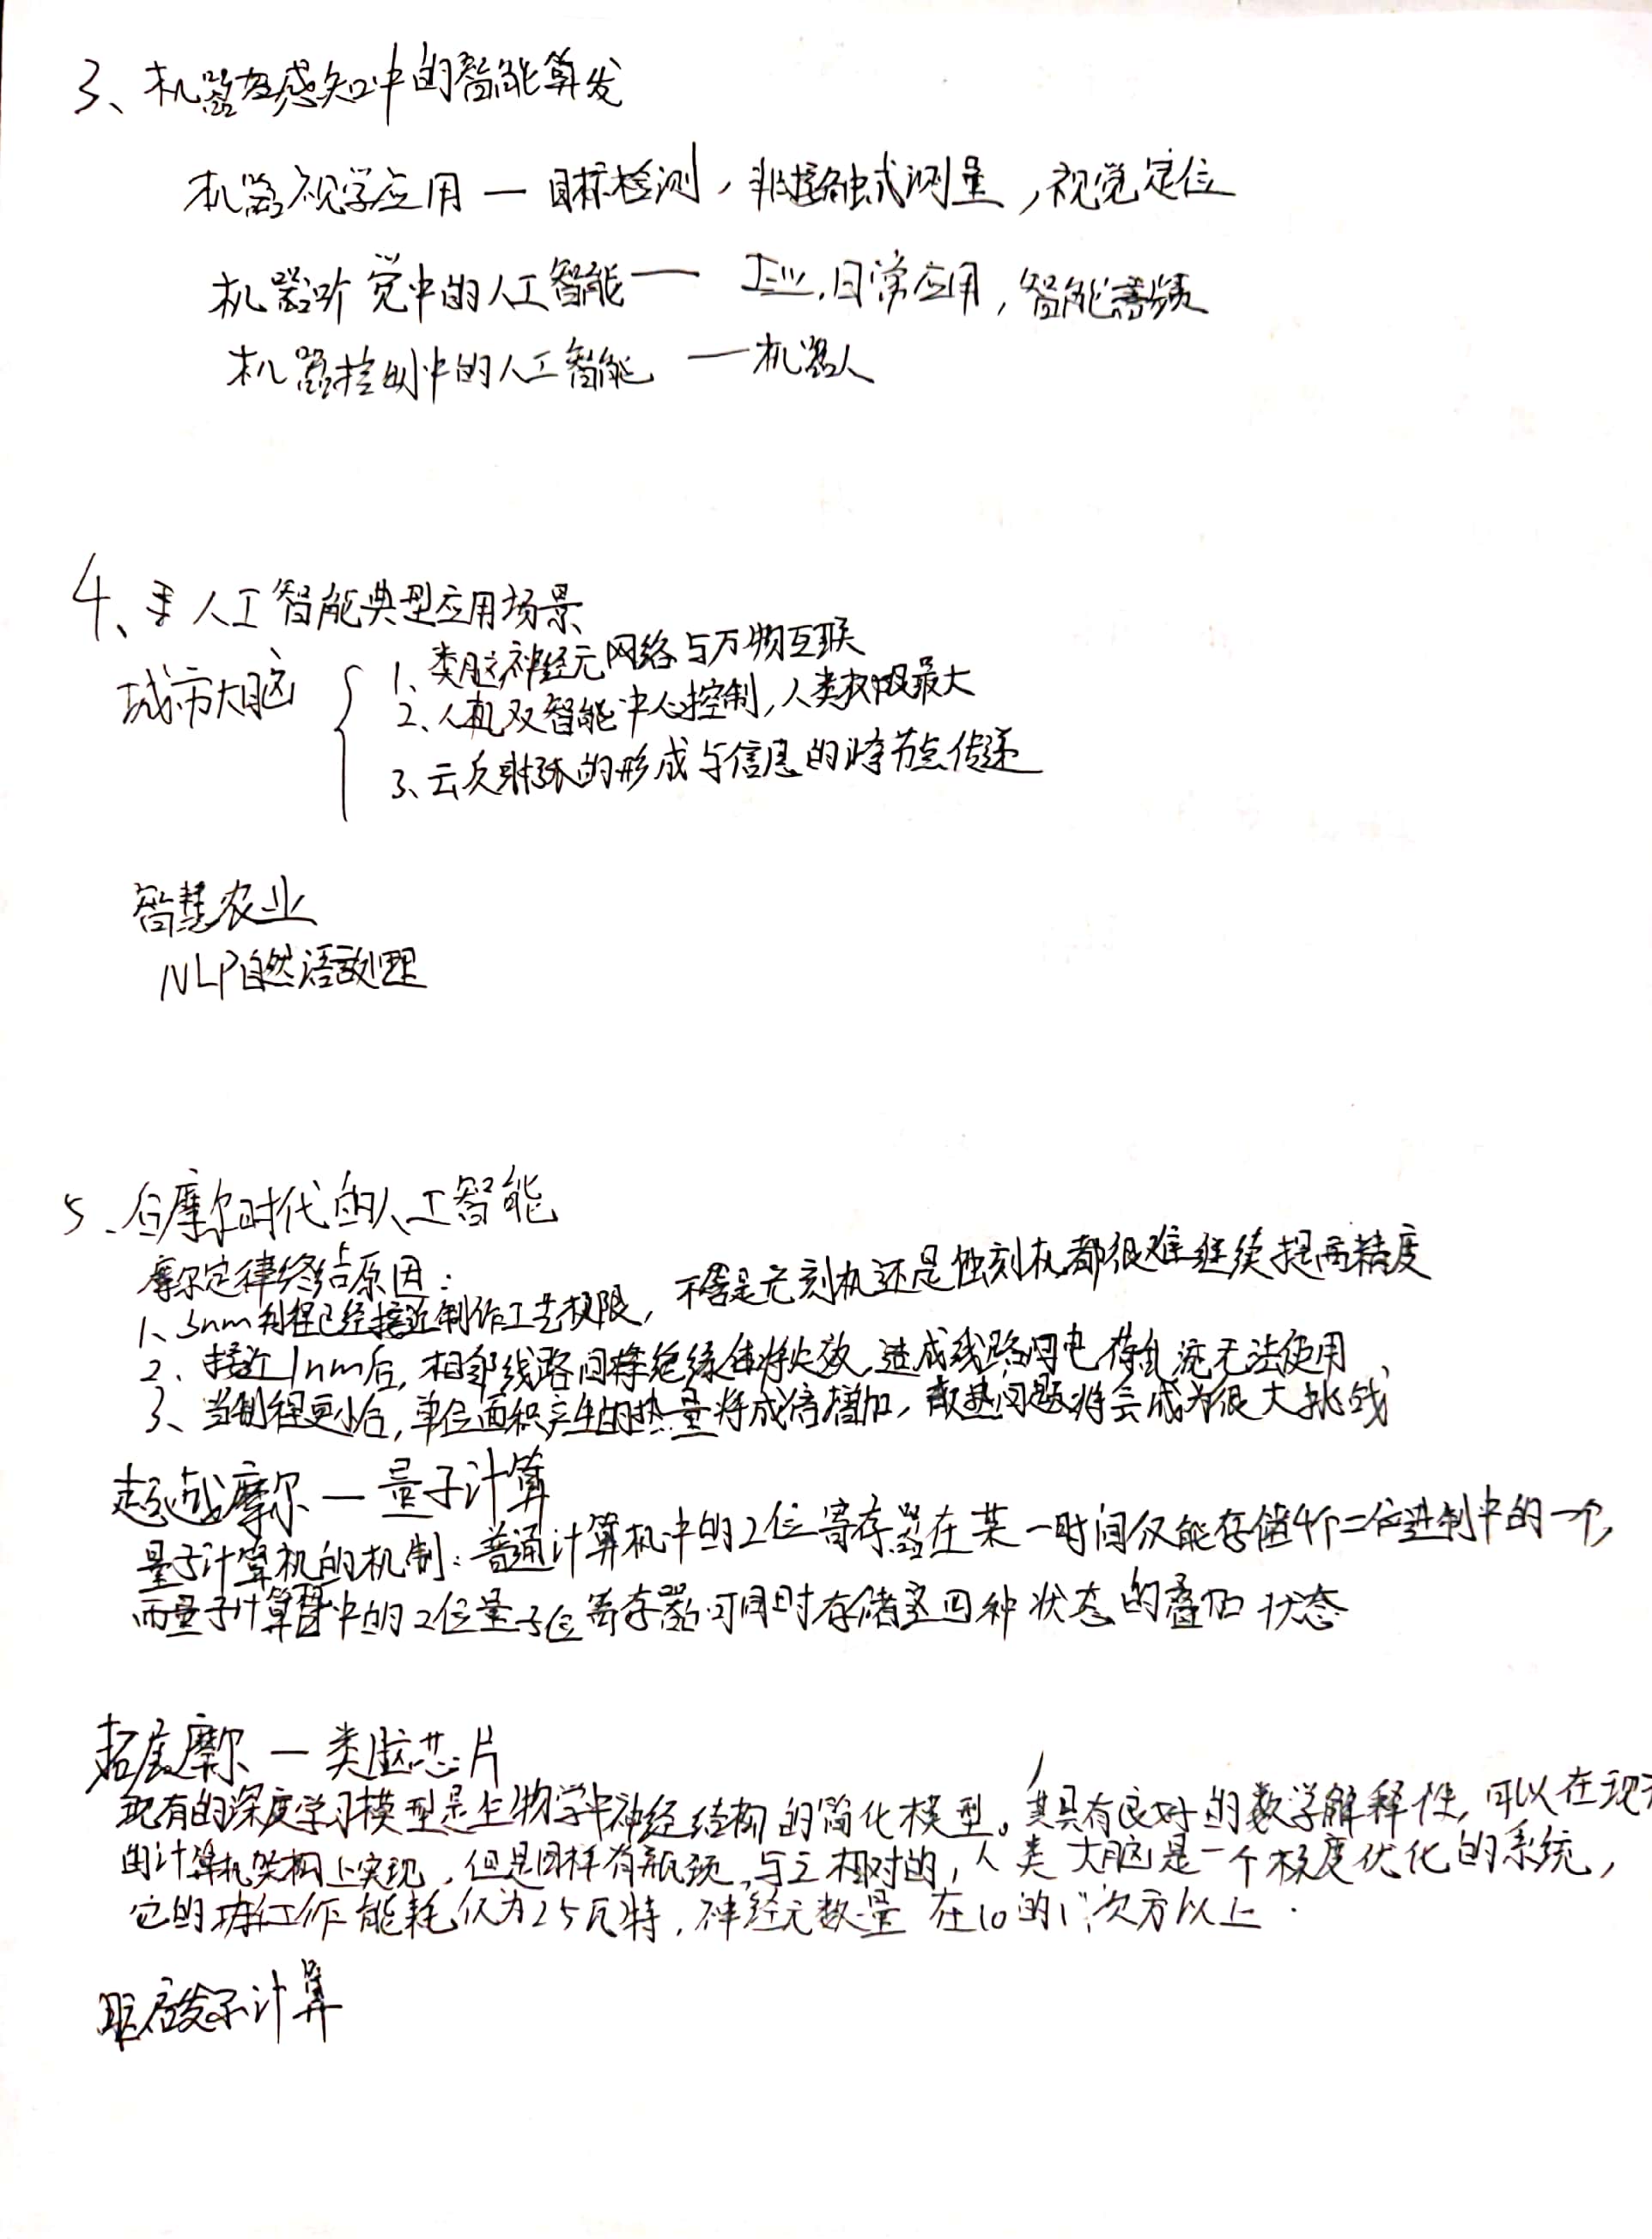 3、机器感知中的智能算发
机器视学应用 — 目标检测，非接触式测量，视觉定位
机器听觉中的人工智能 — 工业，日常应用，智能音频
机器控制中的人工智能 — 机器人
4、人工智能典型应用场景
城市大脑
1、类脑神经元网络与万物互联
2、人机双智能中心控制，人类权限最大
3、云反射弧的形成与信息的跨节点传递
智慧农业
NLP自然语言处理
5、后摩尔时代的人工智能
摩尔定律终结原因：
1、5nm制程已经接近制作工艺极限，不管是光刻机还是蚀刻机都很难继续提高精度
2、接近1nm后，相邻线路间绝缘体将失效，造成线路间电荷乱流无法使用
3、当制程更小后，单位面积产生的热量将成倍增加，散热问题将会成为很大挑战
超越摩尔 — 量子计算
量子计算机的机制：普通计算机中的2位寄存器在某一时间仅能存储4个二位进制中的一个，
而量子计算中的2位量子位寄存器可同时存储这四种状态的叠加状态
拓展摩尔 — 类脑芯片
现有的深度学习模型是生物学中神经结构的简化模型。其具有良好的数学解释性，可以在现有
的计算机架构上实现，但是同样有瓶颈，与之相对的，人类大脑是一个极度优化的系统，
它的工作能耗仅为25瓦特，神经元数量在10的 次方以上.
计算